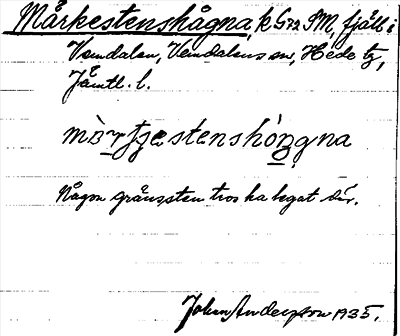 Mårkestenshågna, k G 72 SM, fjäll i
Vemdalen, Vemdalens sn, Hede tg,
Jämtl. l.
mårtjestenshóngna
Någon gränssten tros ha legat där.
John Andersson 1935.